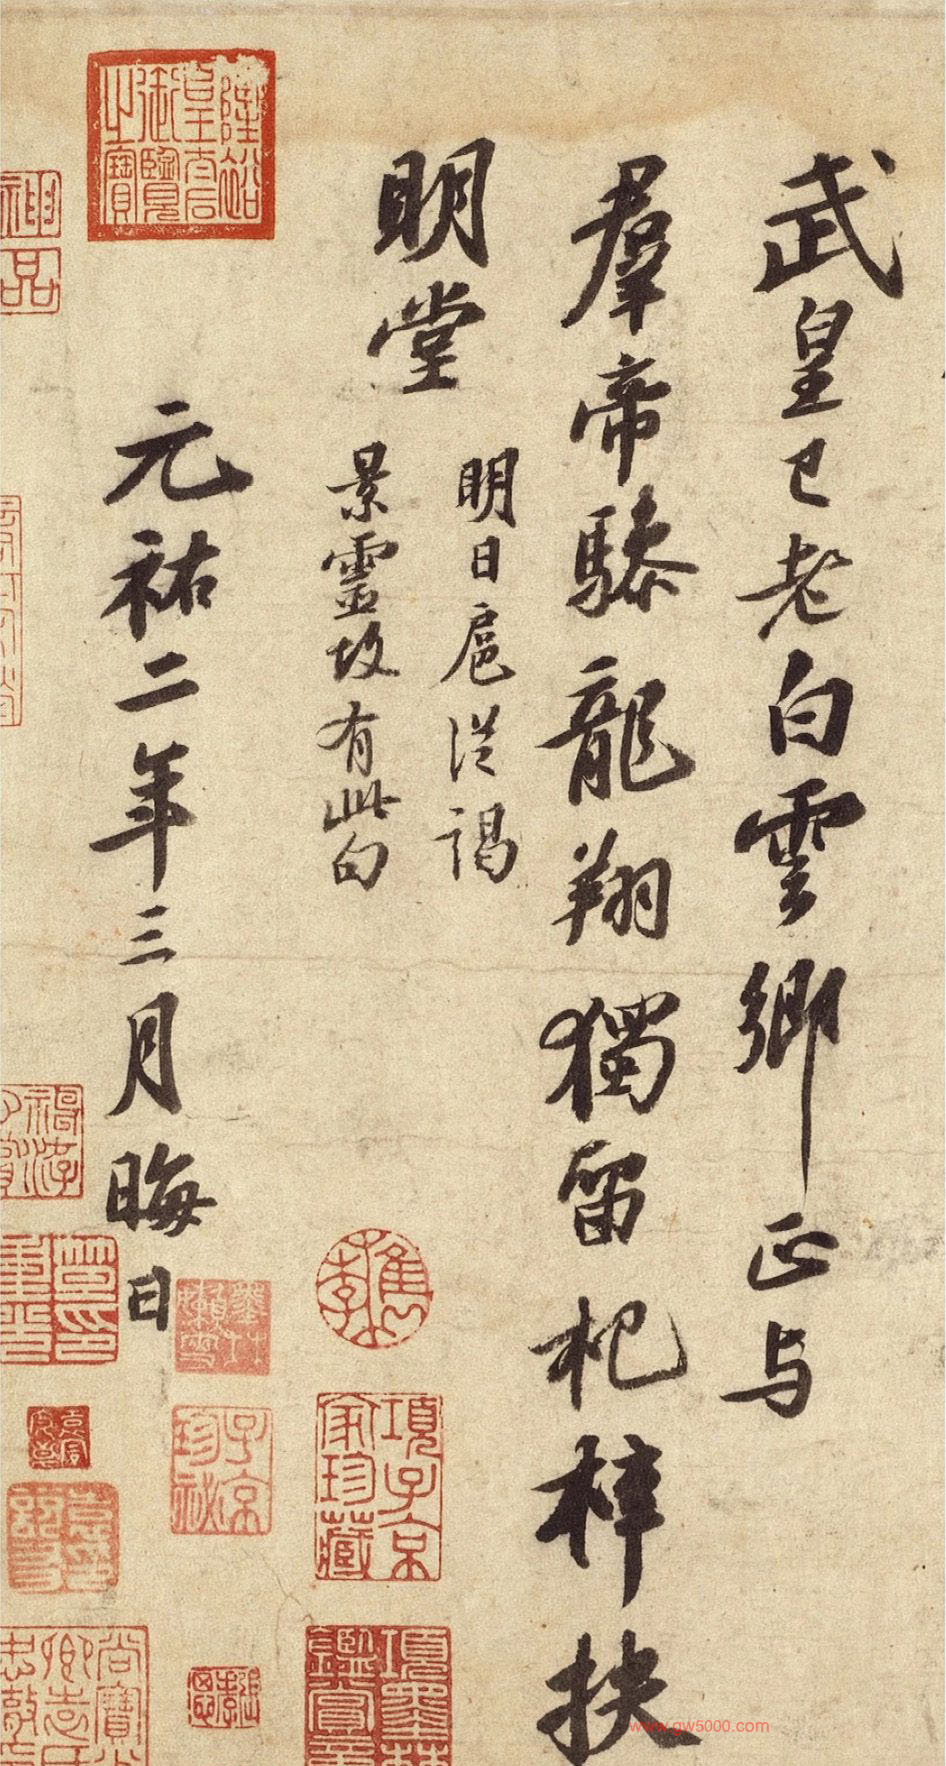 武皇已老白雲鄉正与
羣帝驂龍翔獨留杞梓扶
明堂
明日扈從謁
景靈故有此句
元祐二年三月晦日
隆裕
皇太后
御覽
之寶
神品
項子京
家珍藏
子京
珍秘
www.gw5000.com